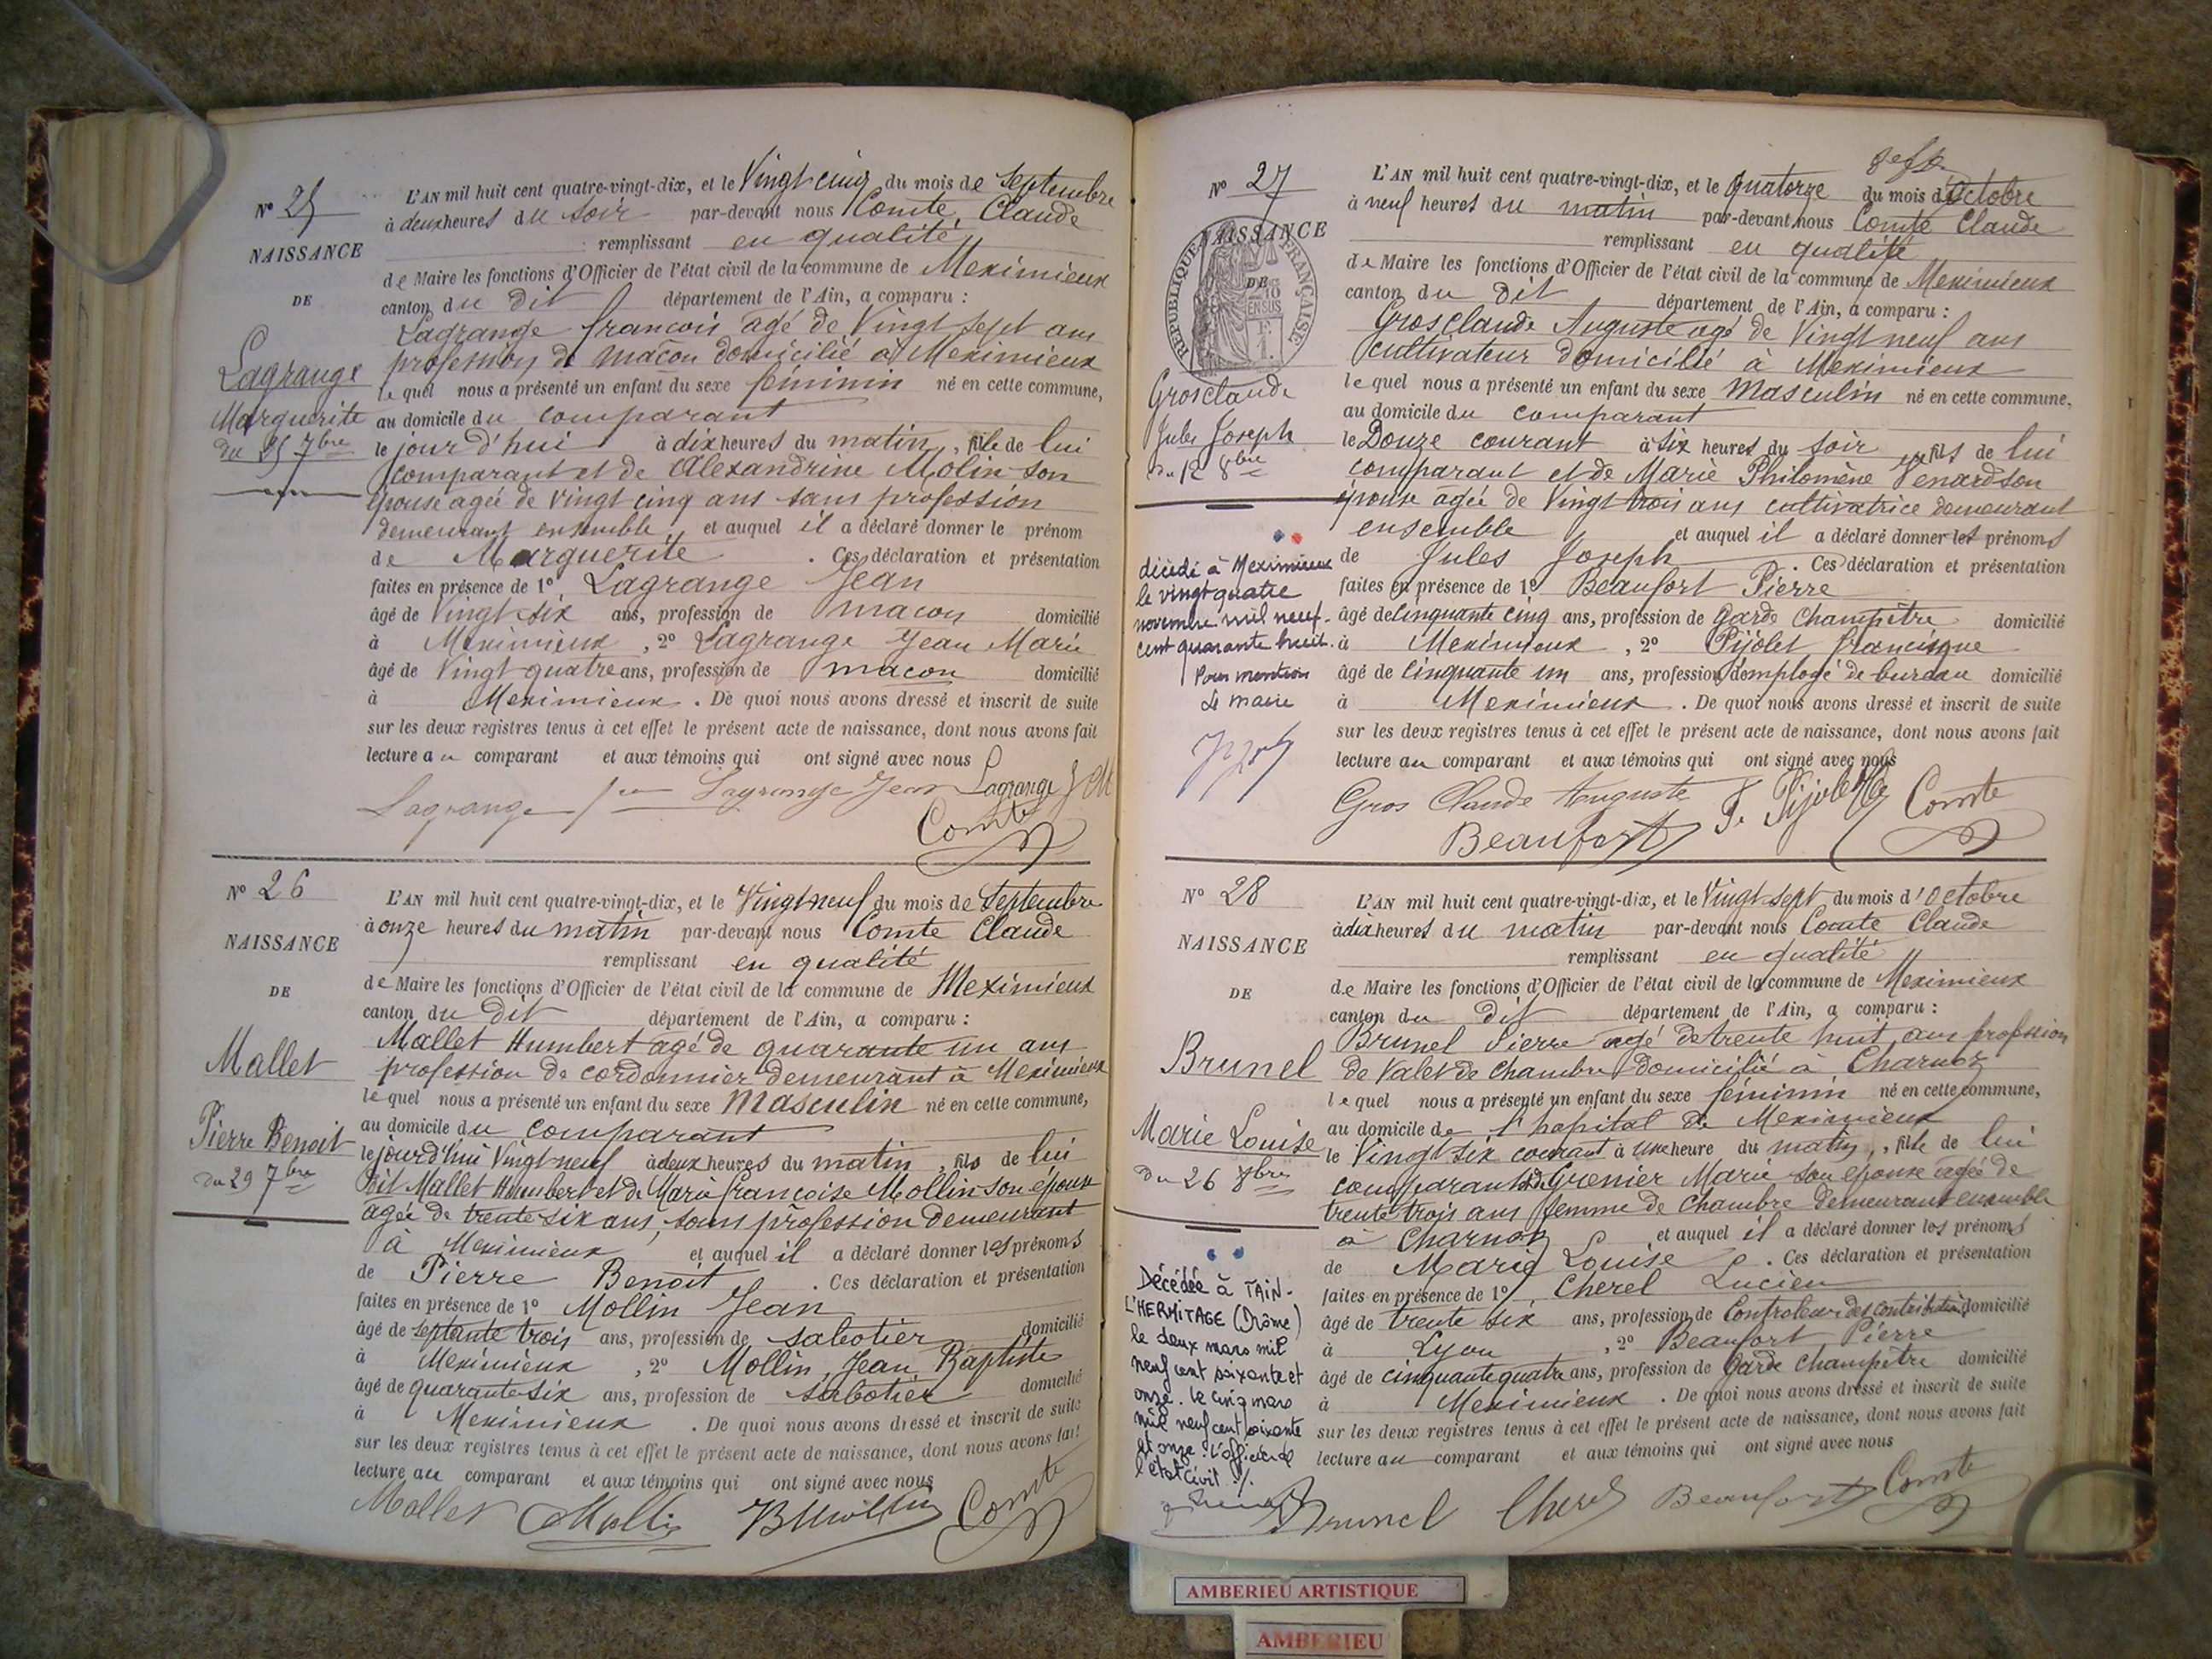 N° 25
NAISSANCE
DE
Lagrange
Marguerite
du 25 7bre
L'AN mil huit cent quatre-vingt-dix, et le Vingt cinq du mois de Septembre
à deux heures du soir par-devant nous Comte, Claude
remplissant en qualité
de Maire les fonctions d'Officier de l'état civil de la commune de Meximieux
canton du dit département de l'Ain, a comparu :
Lagrange françois agé de Vingt sept ans
profession de maçon domicilié à Meximieux
lequel nous a présenté un enfant du sexe féminin né en cette commune,
au domicile du comparant
le jour d'hui à dix heures du matin, fille de lui
comparant et de Alexandrine Molin son
épouse agée de vingt cinq ans sans profession
demeurant ensemble, et auquel il a déclaré donner le prénom
de Marguerite . Ces déclaration et présentation
faites en présence de 1° Lagrange Jean
âgé de Vingt six ans, profession de macon domicilié
à Meximieux, 2° Lagrange Jean Marie
âgé de Vingt quatre ans, profession de macon domicilié
à Meximieux. De quoi nous avons dressé et inscrit de suite
sur les deux registres tenus à cet effet le présent acte de naissance, dont nous avons fait
lecture au comparant et aux témoins qui ont signé avec nous
Lagrange Lagrange Jean Lagrange J M
Comte
N° 26
NAISSANCE
DE
Mallet
Pierre Benoit
du 29 7bre
L'AN mil huit cent quatre-vingt-dix, et le Vingt neuf du mois de Septembre
à onze heures du matin par-devant nous Comte Claude
remplissant en qualité
de Maire les fonctions d'Officier de l'état civil de la commune de Meximieux
canton du Dit département de l'Ain, a comparu :
Mallet Humbert agé de quarante un ans
profession de cordonnier demeurant à Meximieux
lequel nous a présenté un enfant du sexe Masculin né en cette commune,
au domicile du comparant
le jourd'hui Vingt neuf à deux heures du matin, fils de lui
dit Mallet Humbert et de Marie françoise Mollin son épouse
agée de trente six ans, sans profession demeurant
à Meximieux et auquel il a déclaré donner les prénoms
de Pierre Benoit . Ces déclaration et présentation
faites en présence de 1° Mollin Jean
âgé de septante trois ans, profession de sabotier domicilié
à Meximieux, 2° Mollin Jean Baptiste
âgé de quarante six ans, profession de sabotier domicilié
à Meximieux . De quoi nous avons dressé et inscrit de suite
sur les deux registres tenus à cet effet le présent acte de naissance, dont nous avons fait
lecture au comparant et aux témoins qui ont signé avec nous
Mallet Mollin B Mollin Comte
N° 27
NAISSANCE
DE
REPUBLIQUE FRANÇAISE
Grosclaude
Jules Joseph
du 12 8bre
décédé à Meximieux
le vingt quatre
novembre mil neuf
cent quarante huit.
Pour mention
Le maire
L'AN mil huit cent quatre-vingt-dix, et le Quatorze du mois d'Octobre
à neuf heures du matin par-devant nous Comte Claude
remplissant en qualité
de Maire les fonctions d'Officier de l'état civil de la commune de Meximieux
canton du Dit département de l'Ain, a comparu :
Grosclaude Auguste agé de Vingt neuf ans
cultivateur domicilié à Meximieux
lequel nous a présenté un enfant du sexe Masculin né en cette commune,
au domicile du comparant
le Douze courant à six heures du soir, fils de lui
comparant et de Marie Philomène Penard son
épouse agée de Vingt trois ans cultivatrice demeurant
ensemble et auquel il a déclaré donner les prénoms
de Jules Joseph . Ces déclaration et présentation
faites en présence de 1° Beaufort Pierre
âgé de cinquante cinq ans, profession de Garde Champêtre domicilié
à Meximieux, 2° Pijolet francisque
âgé de cinquante un ans, profession d'employé de bureau domicilié
à Meximieux . De quoi nous avons dressé et inscrit de suite
sur les deux registres tenus à cet effet le présent acte de naissance, dont nous avons fait
lecture au comparant et aux témoins qui ont signé avec nous
Gros Claude Auguste F. Pijolet Comte
Beaufort
N° 28
NAISSANCE
DE
Brunel
Marie Louise
du 26 8bre
Décédée à TAIN-
L'HERMITAGE (Drôme)
le deux mars mil
neuf cent soixante et
onze. le cinq mars
mil neuf cent soixante
et onze. L'officier de
l'état civil ./.
L'AN mil huit cent quatre-vingt-dix, et le Vingt sept du mois d'Octobre
à dix heures du matin par-devant nous Comte Claude
remplissant en qualité
de Maire les fonctions d'Officier de l'état civil de la commune de Meximieux
canton du Dit département de l'Ain, a comparu :
Brunel Pierre agé de trente huit ans profession
de Valet de chambre domicilié à Charnoz
lequel nous a présenté un enfant du sexe féminin né en cette commune,
au domicile de l'hopital de Meximieux
le Vingt six courant à une heure du matin, fille de lui
comparant et de Grenier Marie son épouse agée de
trente trois ans femme de chambre demeurant ensemble
à Charnoz et auquel il a déclaré donner les prénoms
de Marie Louise . Ces déclaration et présentation
faites en présence de 1° Cherel Lucien
âgé de trente six ans, profession de Controleur des contributions domicilié
à Lyon, 2° Beaufort Pierre
âgé de cinquante quatre ans, profession de Garde Champêtre domicilié
à Meximieux . De quoi nous avons dressé et inscrit de suite
sur les deux registres tenus à cet effet le présent acte de naissance, dont nous avons fait
lecture au comparant et aux témoins qui ont signé avec nous
Brunel Cherel Beaufort Comte
AMBERIEU ARTISTIQUE
AMBERIEU